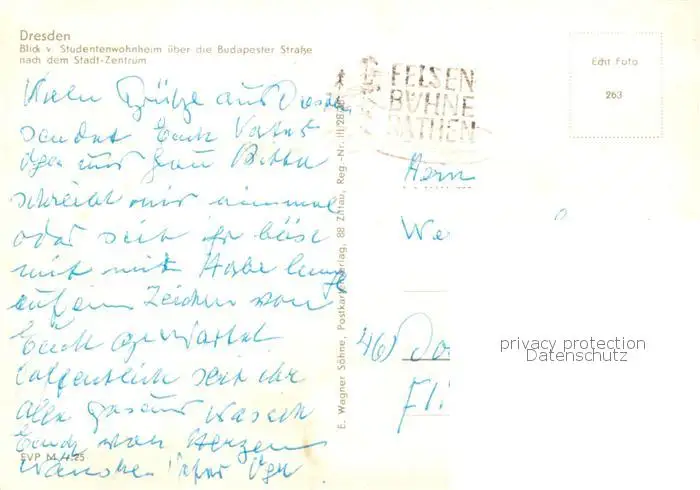 Dresden
Blick v. Studentenwohnheim über die Budapester Straße
nach dem Stadt-Zentrum
Echt Foto
263
FELSEN
BÜHNE
RATHEN
Viele Grüße aus Dresden
sendet Euch Vater
und Frau
schreibt mir einmal
oder seit ihr böse
mit mir Habe lange
auf ein Zeichen von
Euch gewartet
hoffentlich seit ihr
alle gesund was ich
Euch von Herzen
wünsche
Herrn
We
46) Do
Fli
E. Wagner Söhne, Postkartenverlag, 88 Zittau, Reg.-Nr. III/28/
EVP M
privacy protection
Datenschutz